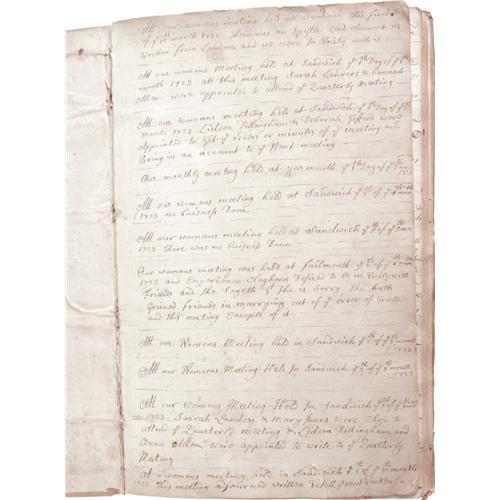 At our womens meeting held att Sandwich this first
of 1723 there was an Epistle Read
written from London and we were In Unity with it
Att our womans Meeting held at Sandwich ye Day of ye
month 1723 att this meeting Sarah Landers & hannah
Allen were appointed to attend ye Quarterly Meeting
Att our womans meeting held at Sandwich ye Day of ye
Month 1723 Lidiea Dillingham & Deborah Gifford were
Appointed to Git ye orders or minutes of ye meeting and
Bring in an account to ye Next meeting
Our monthly meeting held at yarmouth ye Day of ye
1723
Att our womens meeting held at Sandwich ye of ye month
1723 no buisness Done
Att our womans meeting held at Sandwich ye of ye month
1723 There was no Buisness Done
Our womens meeting was held at falmouth ye of ye month
1723 and Experience Claghorn Desired to be in Unity with
friends and She Sayeth yt She is Sorry She hath
Grieved friends in marrying out of ye order of Truth
and this meeting Excepts of it
At our Womens Meeting held in Sandwich ye of ye month
1723
Att our Womans Meeting Held In Sandwich ye of ye month
1723
Att our womens Meeting Held In Sandwich ye of ye
1723 Sarrah Landers & Mary Jones were Chose to
attend ye Quarterly Meeting & Lidiea Dillingham and
Anna Allen were appointed to write to ye Quarterly
Meeting
At a womans meeting held in Sandwich ye of ye month
1723 This meeting a Journed